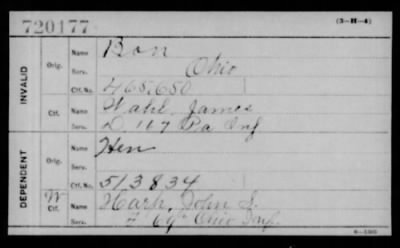 720177
(3-H-4)
INVALID
Orig.
Name Bon
Serv. Ohio
Ctf. No. 465,650
Ctf.
Name Wahl, James
Serv. D. 117 Pa Inf
DEPENDENT
Orig.
Name Hen
Serv.
Ctf. No. 513834
W
Ctf.
Name Harp, John
Serv. 69" Ohio Inf.